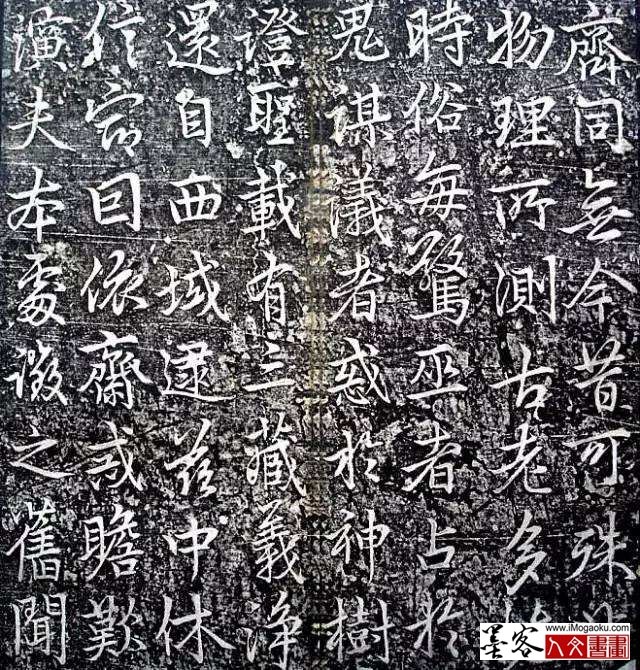 齊同無今昔可殊
物理所測古老多
時俗每驚巫者占於
鬼謀議者惑於神樹
證聖載有三藏義淨
還自西域逮茲中休
信宿因依齋戒瞻歎
演夫本處徵之舊聞
墨客
www.iMogaoku.com
人文書畫